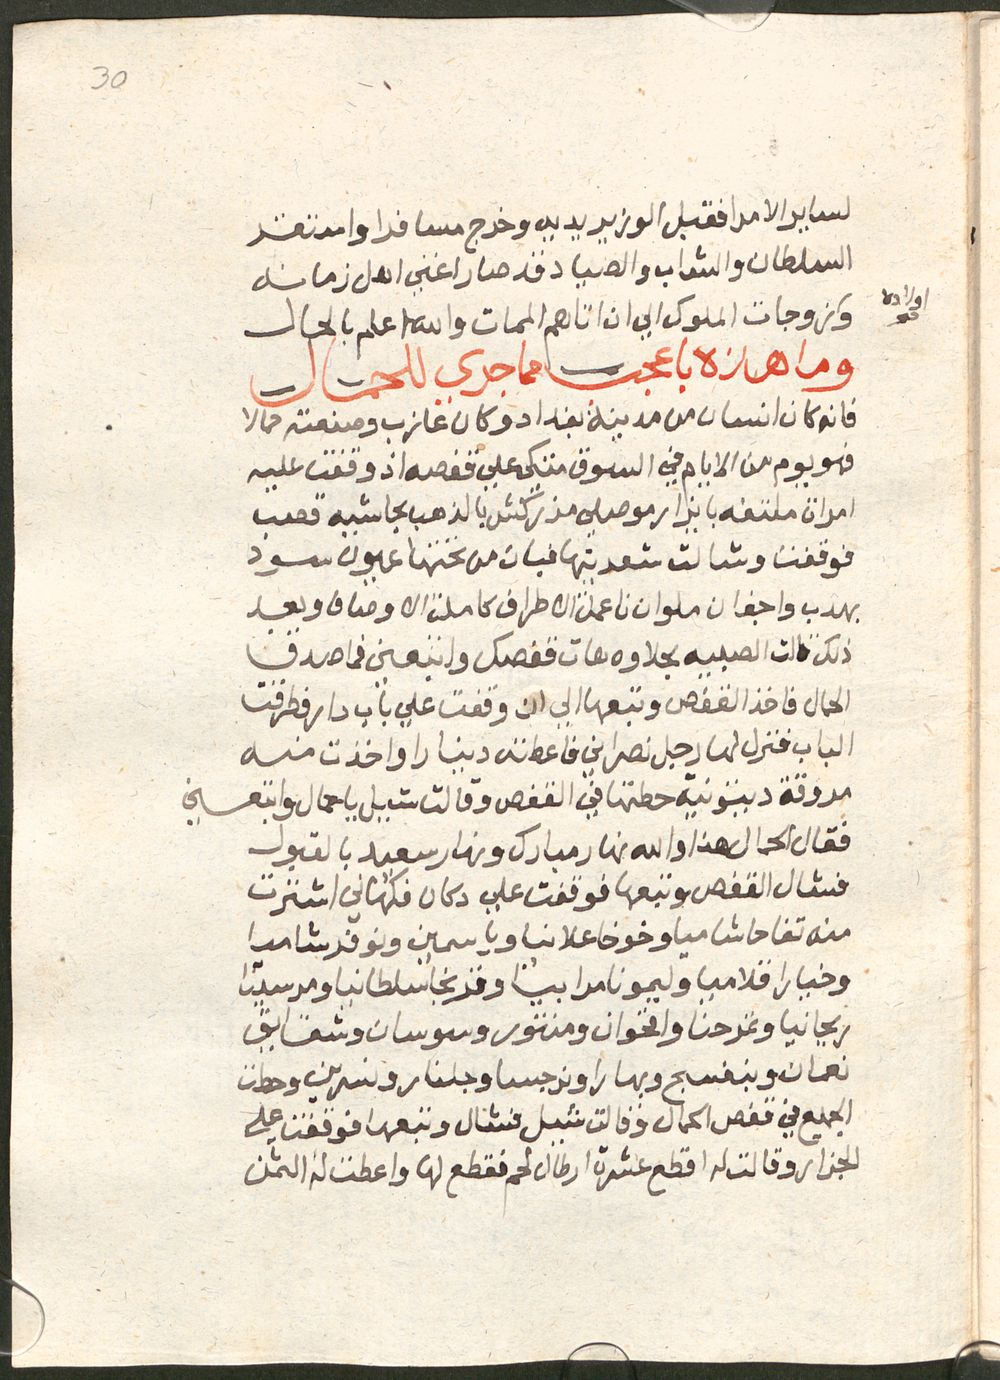 30
لساير الامرا فقبل الوزير يديه وخرج مسافرا وامر تقعد
السلطان والشاب والصياد قد صار اغني اهل زمانه
وتزوجات الملوك الي ان اتاهم الممات والله اعلم بالحال
وما هذه باعجب مما جري للحمال
فانه كان انسان من مدينة بغداد وكان عازب وصنعته حمالا
فهو يوم من الايام في السوق متكي علي قفصه اذ وقفت عليه
امراة ملتفه بايزار موصلي مزركش بالذهب بحاشيه قصب
فوقفت وشالت شعريتها فبان من تحتها عيون سود
بهدب واجفان ملوان ناعمة الاطراف كاملة الاوصاف وبعد
ذلك قالت الصبيه بحلاوه هات قفصك واتبعني فما صدق
الحمال فاخذ القفص وتبعها الي ان وقفت علي باب دار فطرقت
الباب فنزل لها رجل نصراني فاعطته دينارا واخذت منه
مروقة ديتونية حطتها في القفص وقالت شيل يا حمال واتبعني
فقال الحمال هذا والله نهار مبارك ونهار سعيد بالقبول
فشال القفص وتبعها فوقفت علي دكان فكهاني اشترت
منه تفاحا شاميا وخوخا علانيا وياسمين ونوفر شاميا
وخيارا اقلاميا وليمونا مراببا وفرنجا سلطانيا ومرسينا
ريحانيا وتمرحنا واقحوان ومنتور وسوسان وشقايق
نعمان وبنفسج وبهارا ونرجسا وجلنار ونسرين وحطت
الجميع في قفص الحمال وقالت شيل فشال وتبعها فوقفت علي
الجزار وقالت له اقطع عشرة ارطال لحم فقطع لها واعطت له الثمن